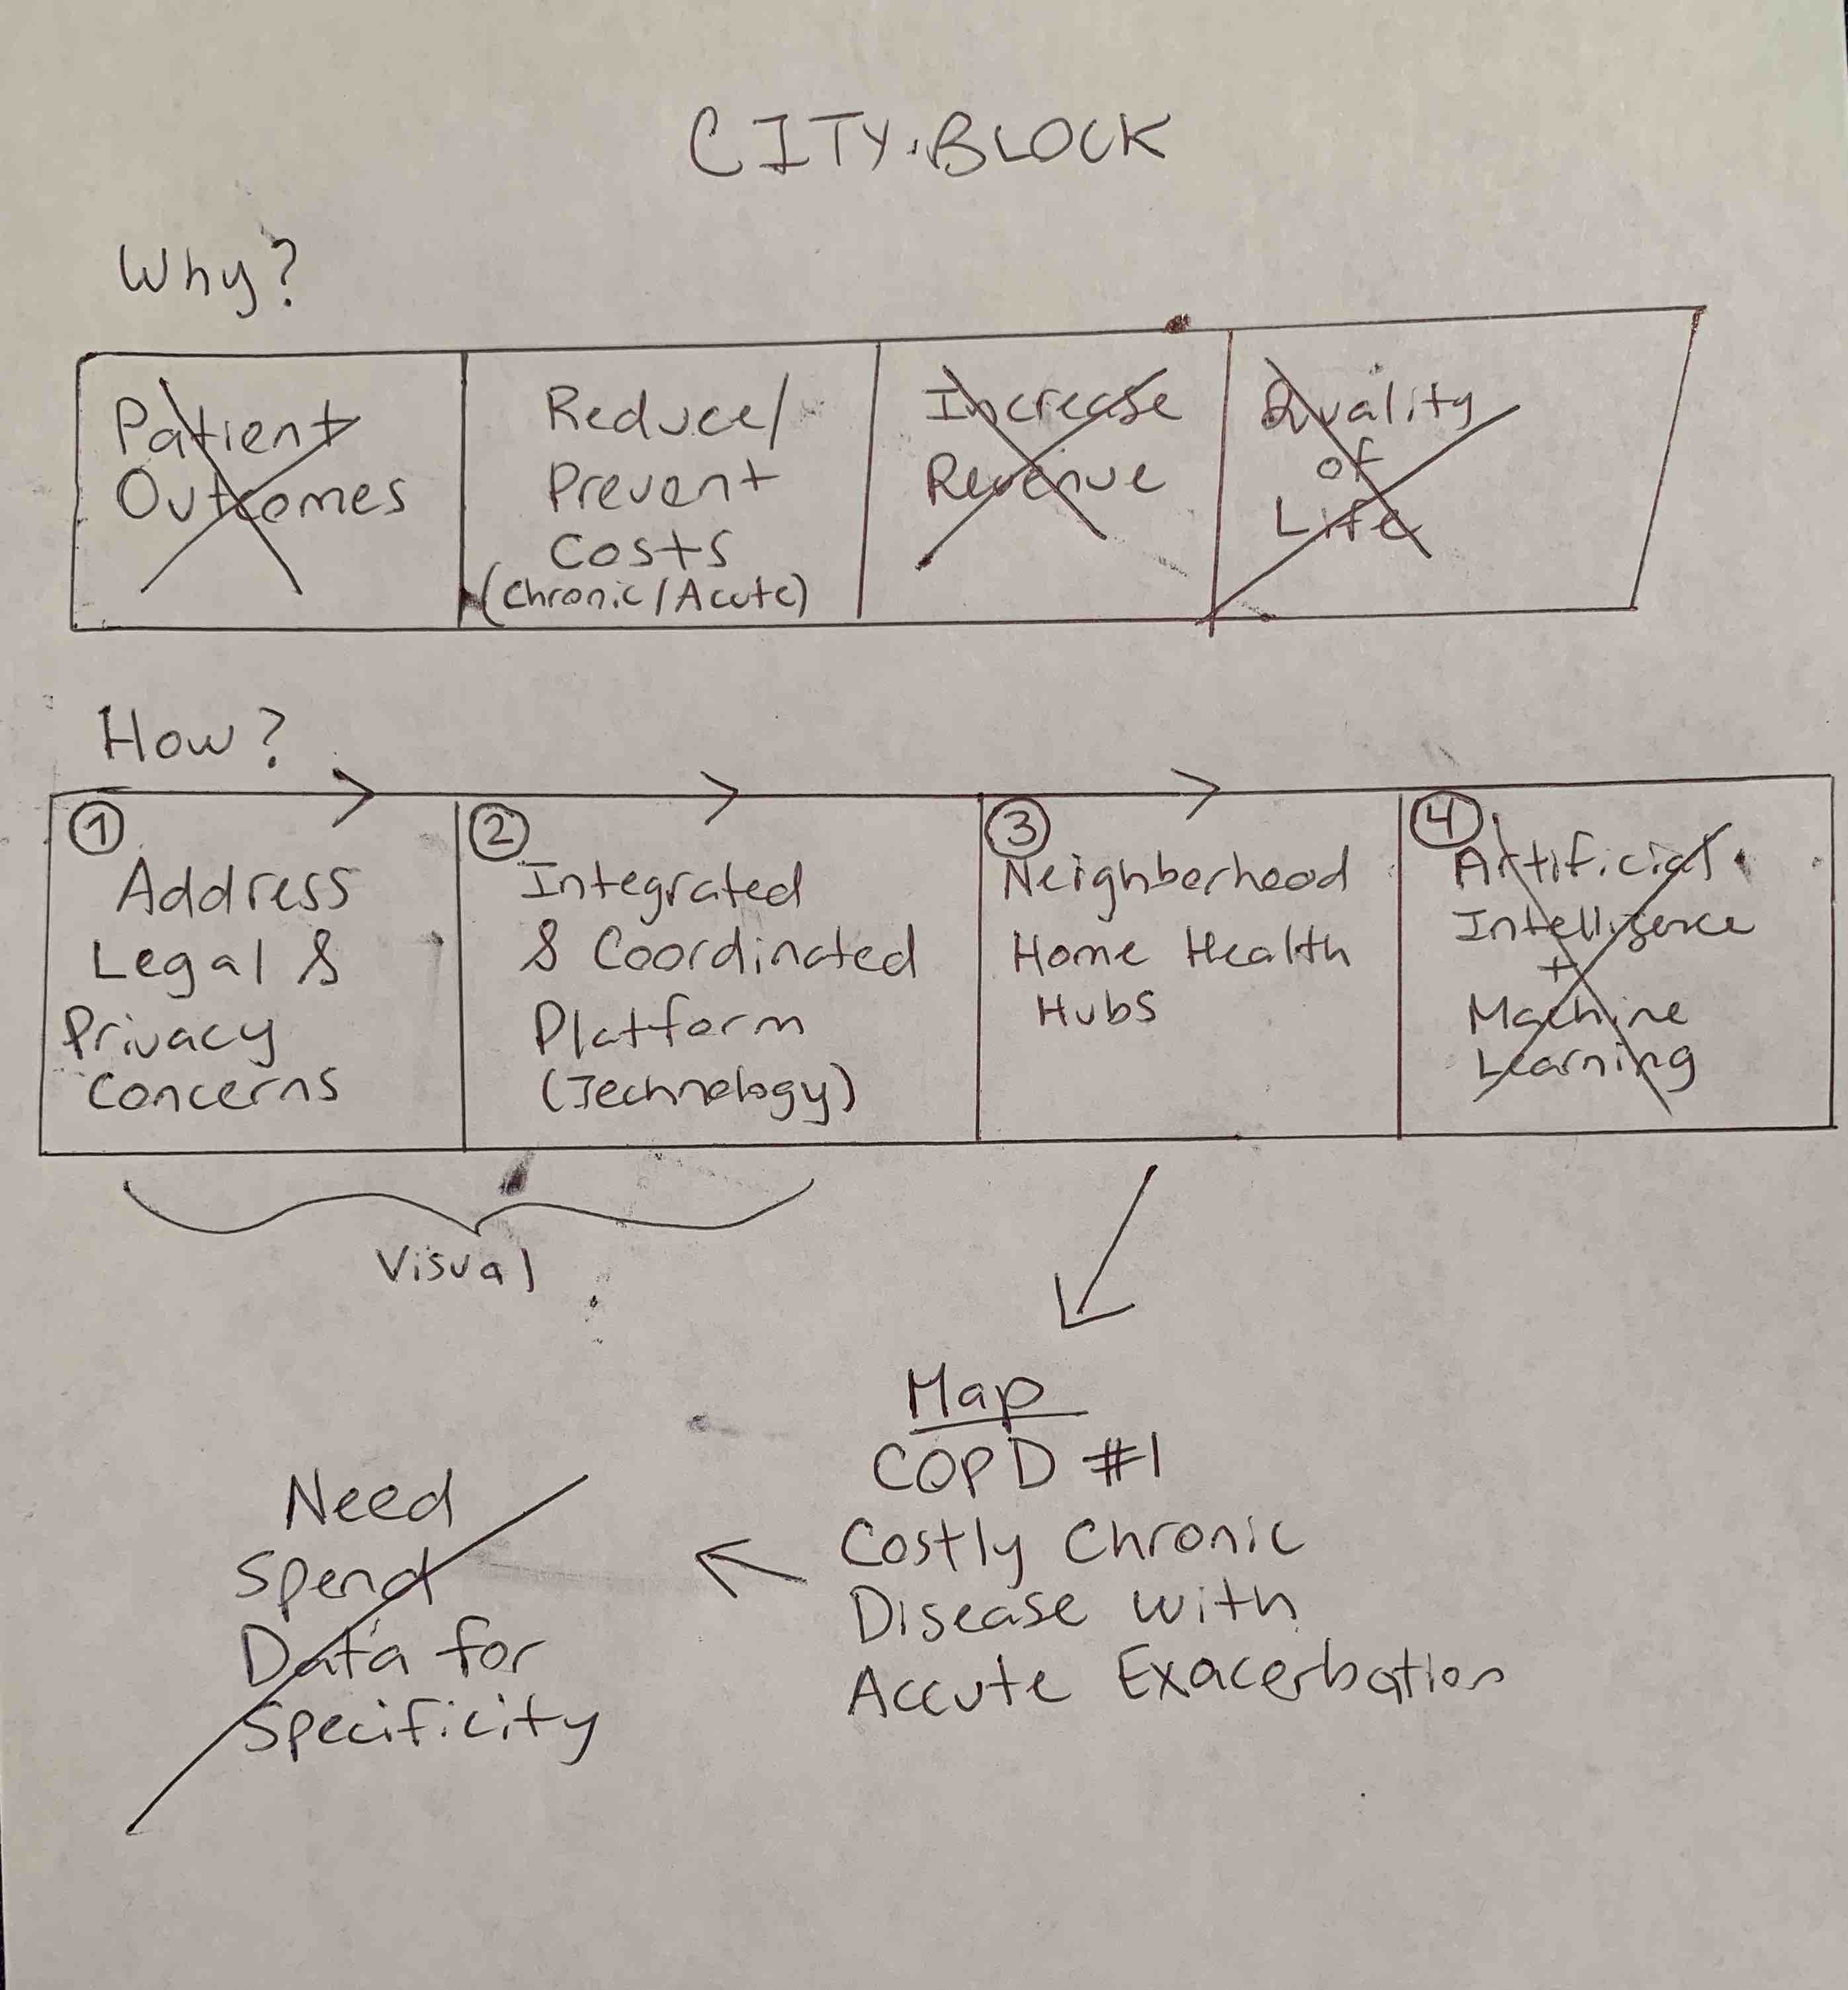 CITY.BLOCK
Why?
Patient
Outcomes
Reduce/
Prevent
Costs
(Chronic/Acute)
Increase
Revenue
Quality
of
Life
How?
1
Address
Legal &
Privacy
Concerns
2
Integrated
& Coordinated
Platform
(Technology)
3
Neighborhood
Home Health
Hubs
4
Artificial
Intelligence
+
Machine
Learning
Visual
Map
COPD #1
Costly Chronic
Disease with
Accute Exacerbation
Need
Spend
Data for
Specificity